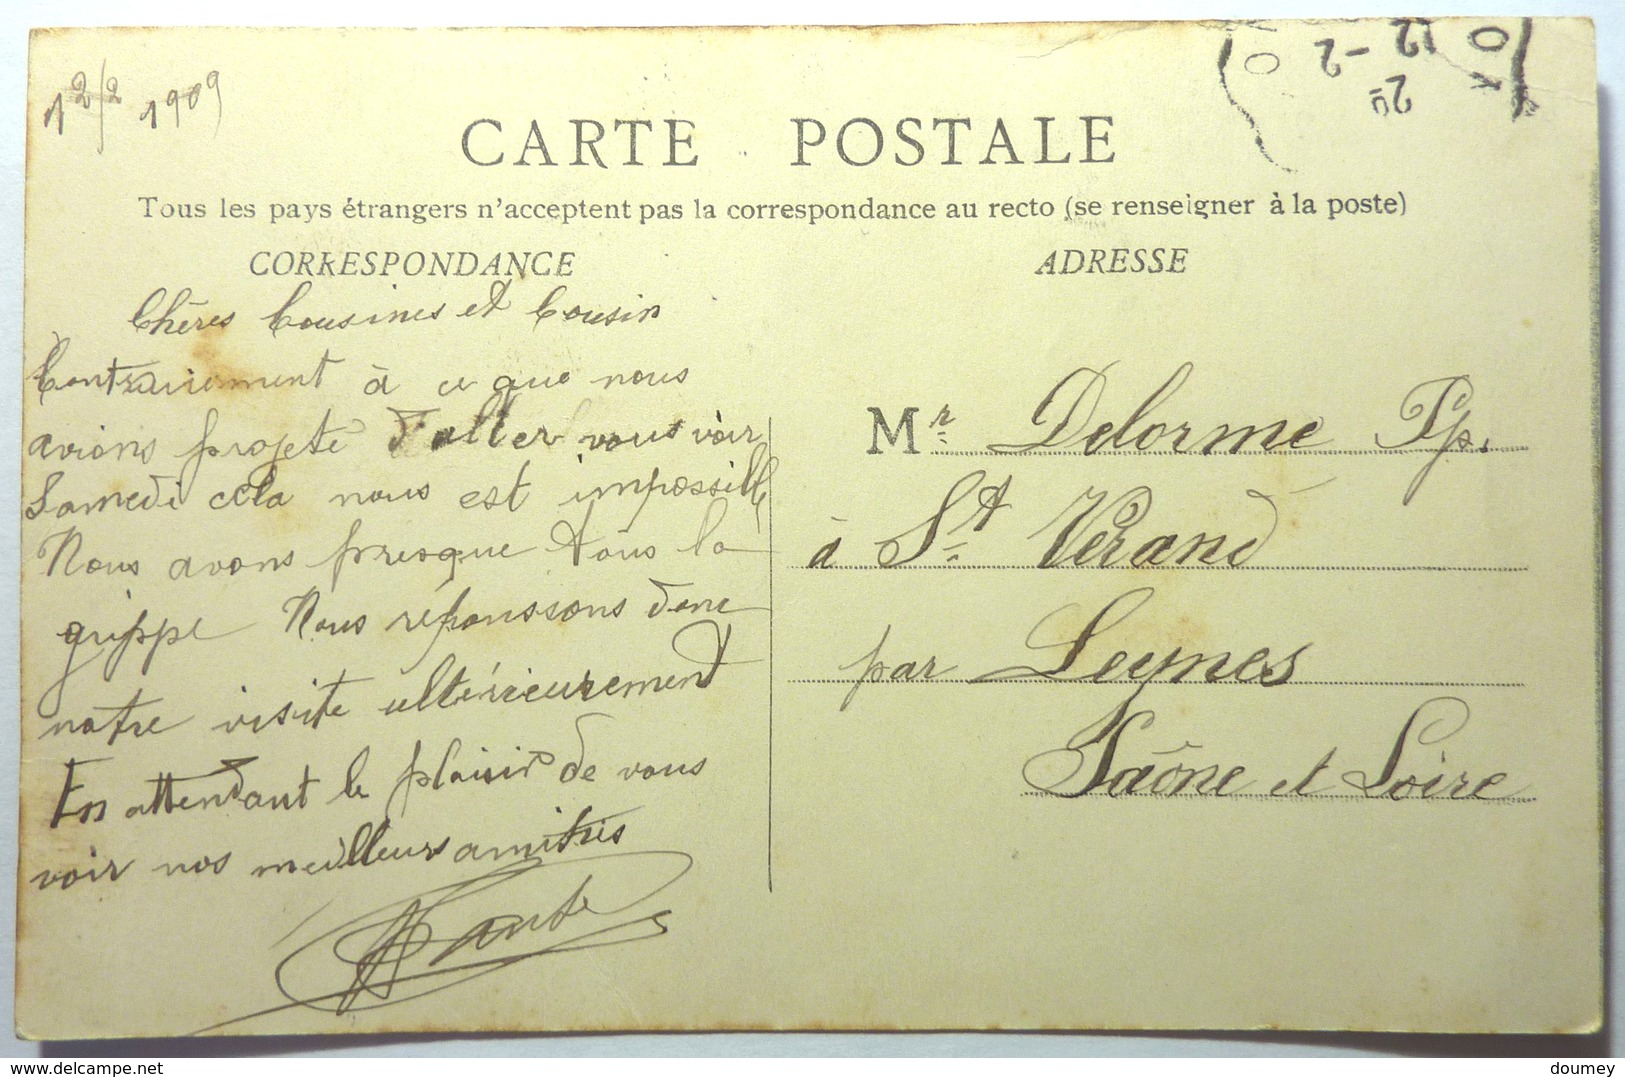 12/2 1909
12-2
CARTE POSTALE
Tous les pays étrangers n'acceptent pas la correspondance au recto (se renseigner à la poste)
CORRESPONDANCE
Chères Cousines et Cousin
Contrairement à ce que nous
avions projeté d'aller vous voir
Samedi cela nous est impossible
Nous avons presque tous la
grippe Nous répoussons donc
notre visite ultérieurement
En attendant le plaisir de vous
voir nos meilleurs amitiés
ADRESSE
Mr Delorme Pp.
à St Vérand
par Leynes
Saône et Loire
delcampe.net
doumey